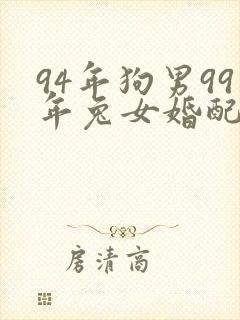 94年狗男99
年兔女婚配
房清高